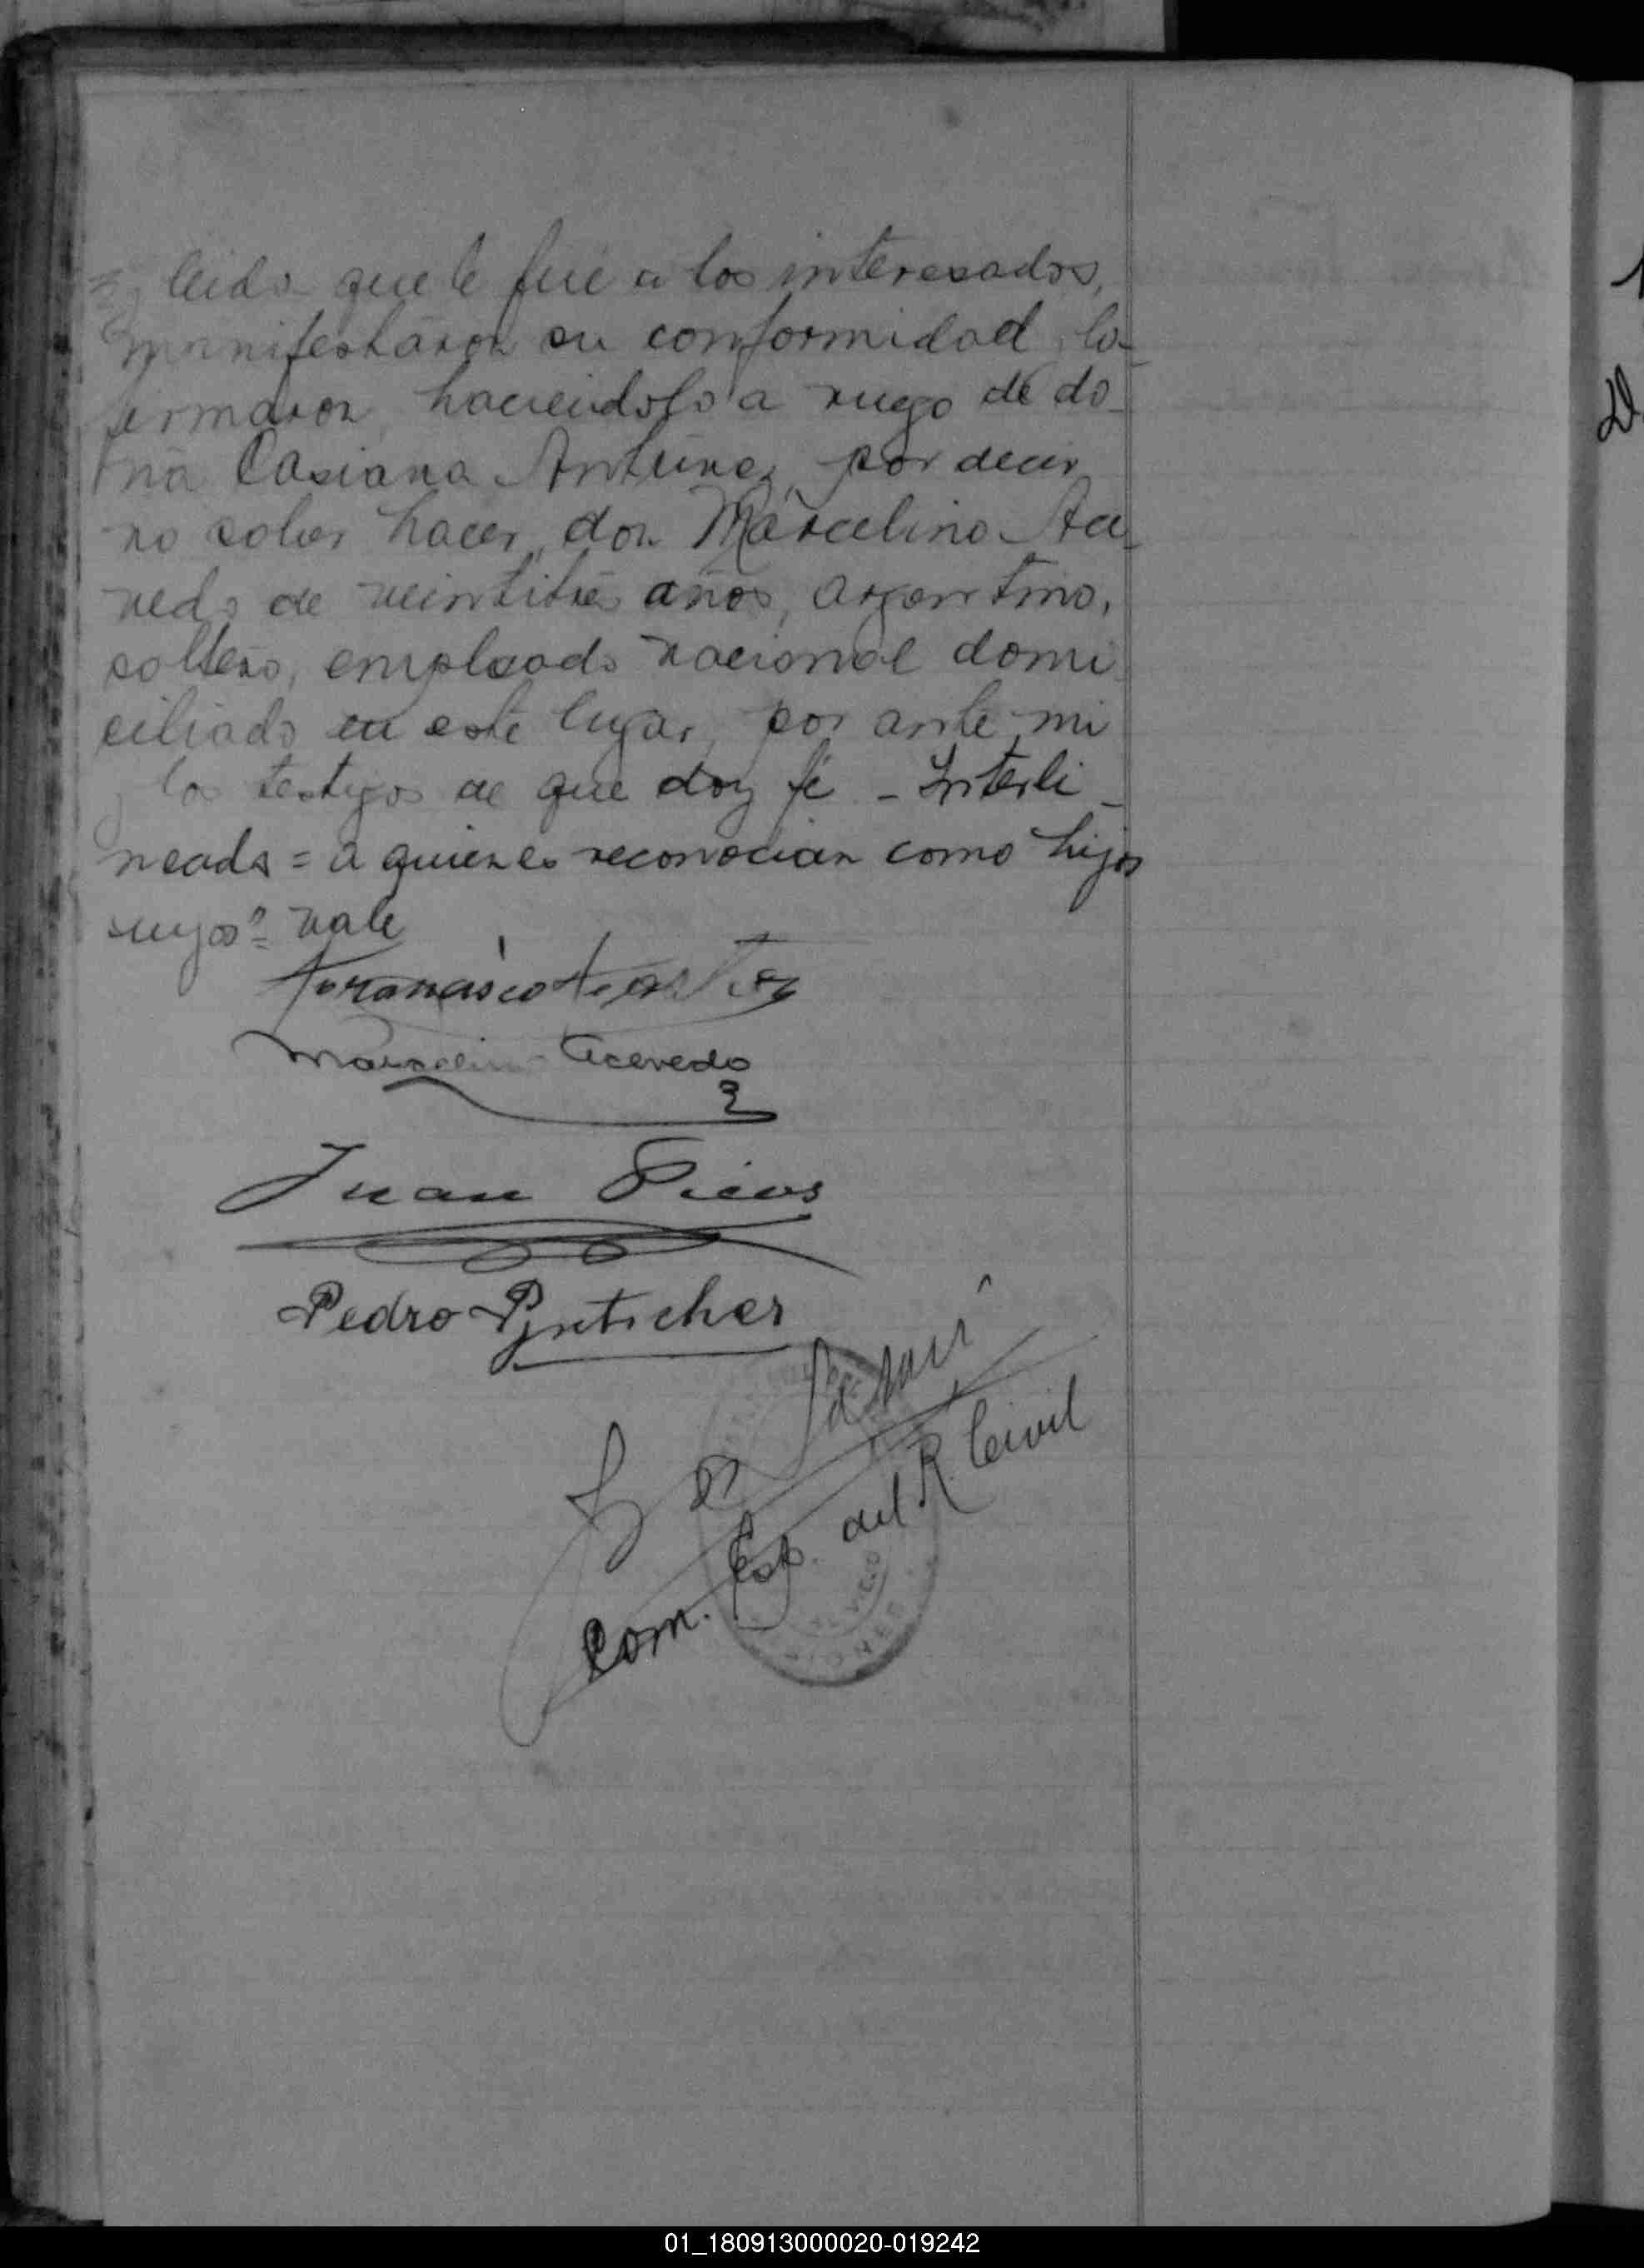 y leida que le fué a los interesados,
manifestaron su conformidad, la
firmaron, haciendolo a ruego de do-
ña Casiana Antúnez, por decir
no saber hacer, don Marcelino Ace-
vedo de veintitres años, argentino,
soltero, empleado nacional domi
ciliado en este lugar, por ante mi
y los testigos de que doy fé - Interli-
neado = a quienes reconocian como hijos
suyos" = vale
Marcelino Acevedo
Juan Picos
Pedro
Com. Esp. del R. Civil
01_180913000020-019242